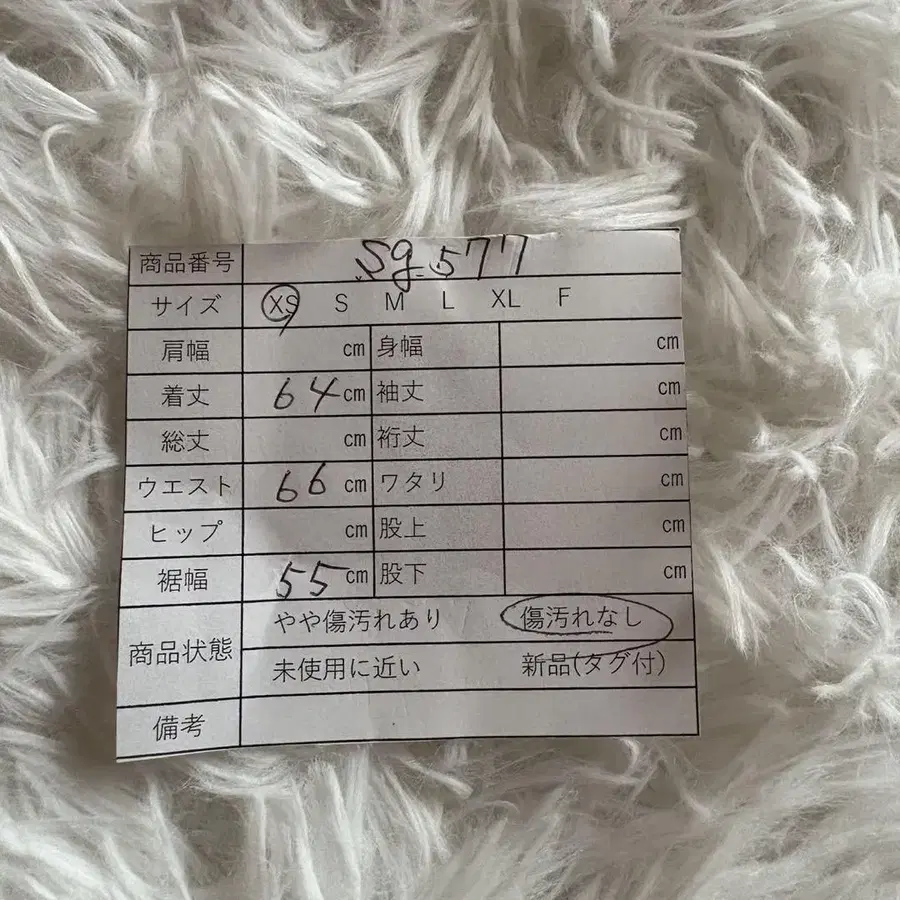 商品番号 Sg.577
サイズ XS S M L XL F
肩幅 cm 身幅 cm
着丈 64 cm 袖丈 cm
総丈 cm 裄丈 cm
ウエスト 66 cm ワタリ cm
ヒップ cm 股上 cm
裾幅 55 cm 股下 cm
商品状態 やや傷汚れあり 傷汚れなし
未使用に近い 新品(タグ付)
備考